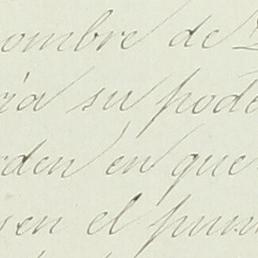 ombre de
ria su pode
rden en que
en el pun